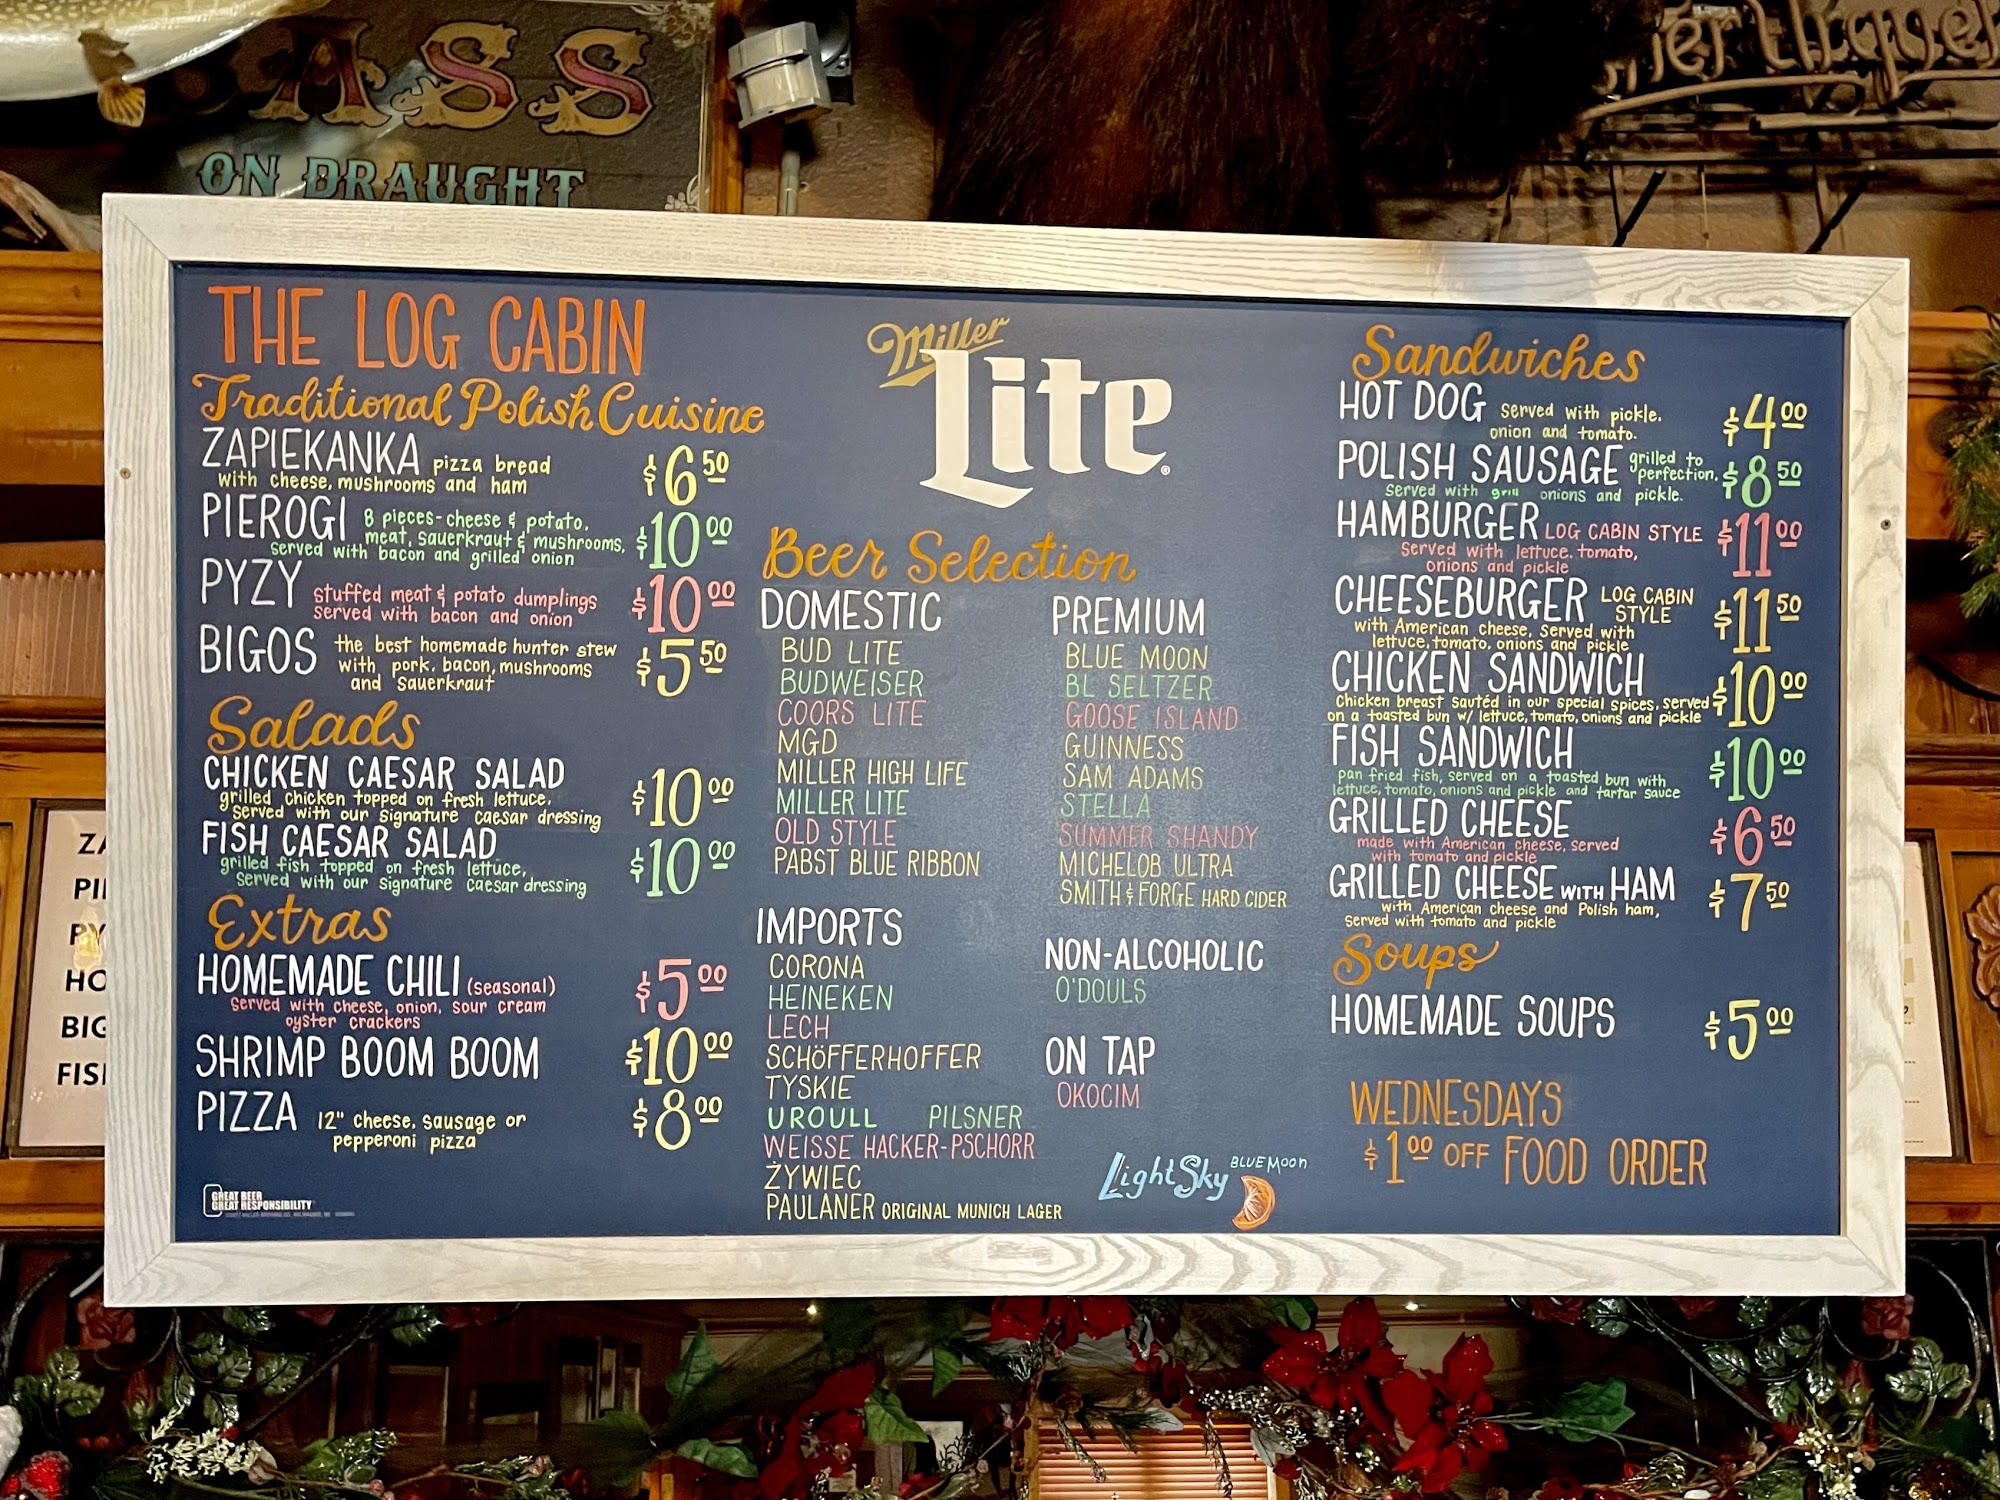 ASS
ON DRAUGHT
THE LOG CABIN
Traditional Polish Cuisine
ZAPIEKANKA pizza bread $6.50
with cheese, mushrooms and ham
PIEROGI 8 pieces-cheese & potato, $10.00
meat, sauerkraut & mushrooms,
served with bacon and grilled onion
PYZY stuffed meat & potato dumplings $10.00
served with bacon and onion
BIGOS the best homemade hunter stew $5.50
with pork, bacon, mushrooms
and sauerkraut
Salads
CHICKEN CAESAR SALAD $10.00
grilled chicken topped on fresh lettuce,
served with our signature caesar dressing
FISH CAESAR SALAD $10.00
grilled fish topped on fresh lettuce,
served with our signature caesar dressing
Extras
HOMEMADE CHILI (seasonal) $5.00
served with cheese, onion, sour cream
oyster crackers
SHRIMP BOOM BOOM $10.00
PIZZA 12" cheese, sausage or $8.00
pepperoni pizza
GREAT BEER
GREAT RESPONSIBILITY
Miller
Lite
Beer Selection
DOMESTIC
BUD LITE
BUDWEISER
COORS LITE
MGD
MILLER HIGH LIFE
MILLER LITE
OLD STYLE
PABST BLUE RIBBON
IMPORTS
CORONA
HEINEKEN
LECH
SCHÖFFERHOFFER
TYSKIE
UROULL PILSNER
WEISSE HACKER-PSCHORR
ŻYWIEC
PAULANER ORIGINAL MUNICH LAGER
PREMIUM
BLUE MOON
BL SELTZER
GOOSE ISLAND
GUINNESS
SAM ADAMS
STELLA
SUMMER SHANDY
MICHELOB ULTRA
SMITH & FORGE HARD CIDER
NON-ALCOHOLIC
O'DOULS
ON TAP
OKOCIM
LightSky BLUE MOON
Sandwiches
HOT DOG served with pickle, $4.00
onion and tomato.
POLISH SAUSAGE grilled to $8.50
perfection,
served with grill onions and pickle.
HAMBURGER LOG CABIN STYLE $11.00
served with lettuce, tomato,
onions and pickle
CHEESEBURGER LOG CABIN $11.50
STYLE
with American cheese, served with
lettuce, tomato, onions and pickle
CHICKEN SANDWICH $10.00
Chicken breast sautéd in our special spices, served
on a toasted bun w/ lettuce, tomato, onions and pickle
FISH SANDWICH $10.00
pan fried fish, served on a toasted bun with
lettuce, tomato, onions and pickle and tartar sauce
GRILLED CHEESE $6.50
made with American cheese, served
with tomato and pickle
GRILLED CHEESE WITH HAM $7.50
with American cheese and Polish ham,
served with tomato and pickle
Soups
HOMEMADE SOUPS $5.00
WEDNESDAYS
$1.00 OFF FOOD ORDER
ZA
PI
PY
HO
BIG
FIS